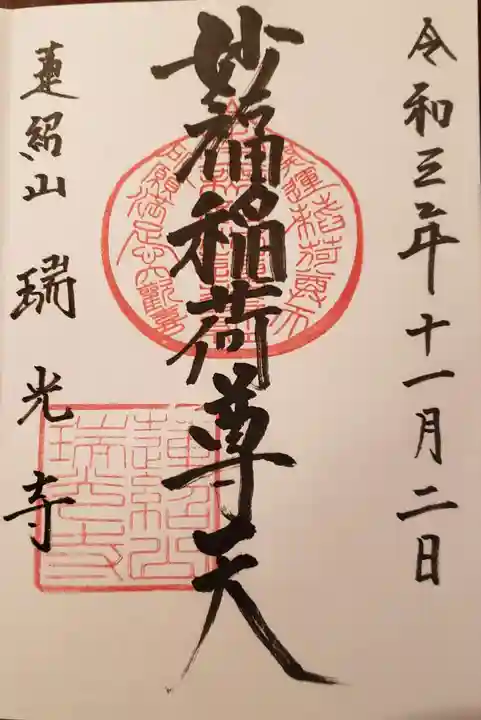 令和三年十一月二日
妙福稲荷尊天
蓮紹山 瑞光寺
蓮紹山
瑞光寺